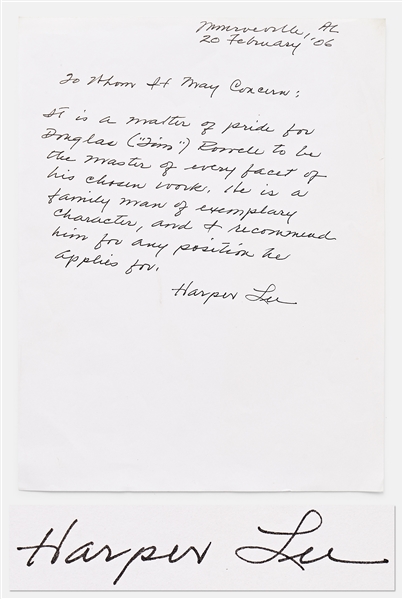 Monroeville, AL
20 February, '06
To Whom It May Concern:
It is a matter of pride for
Douglas ("Jim") Rowell to be
the master of every facet of
his chosen work. He is a
family man of exemplary
character, and I recommend
him for any position he
applies for.
Harper Lee
Harper Lee